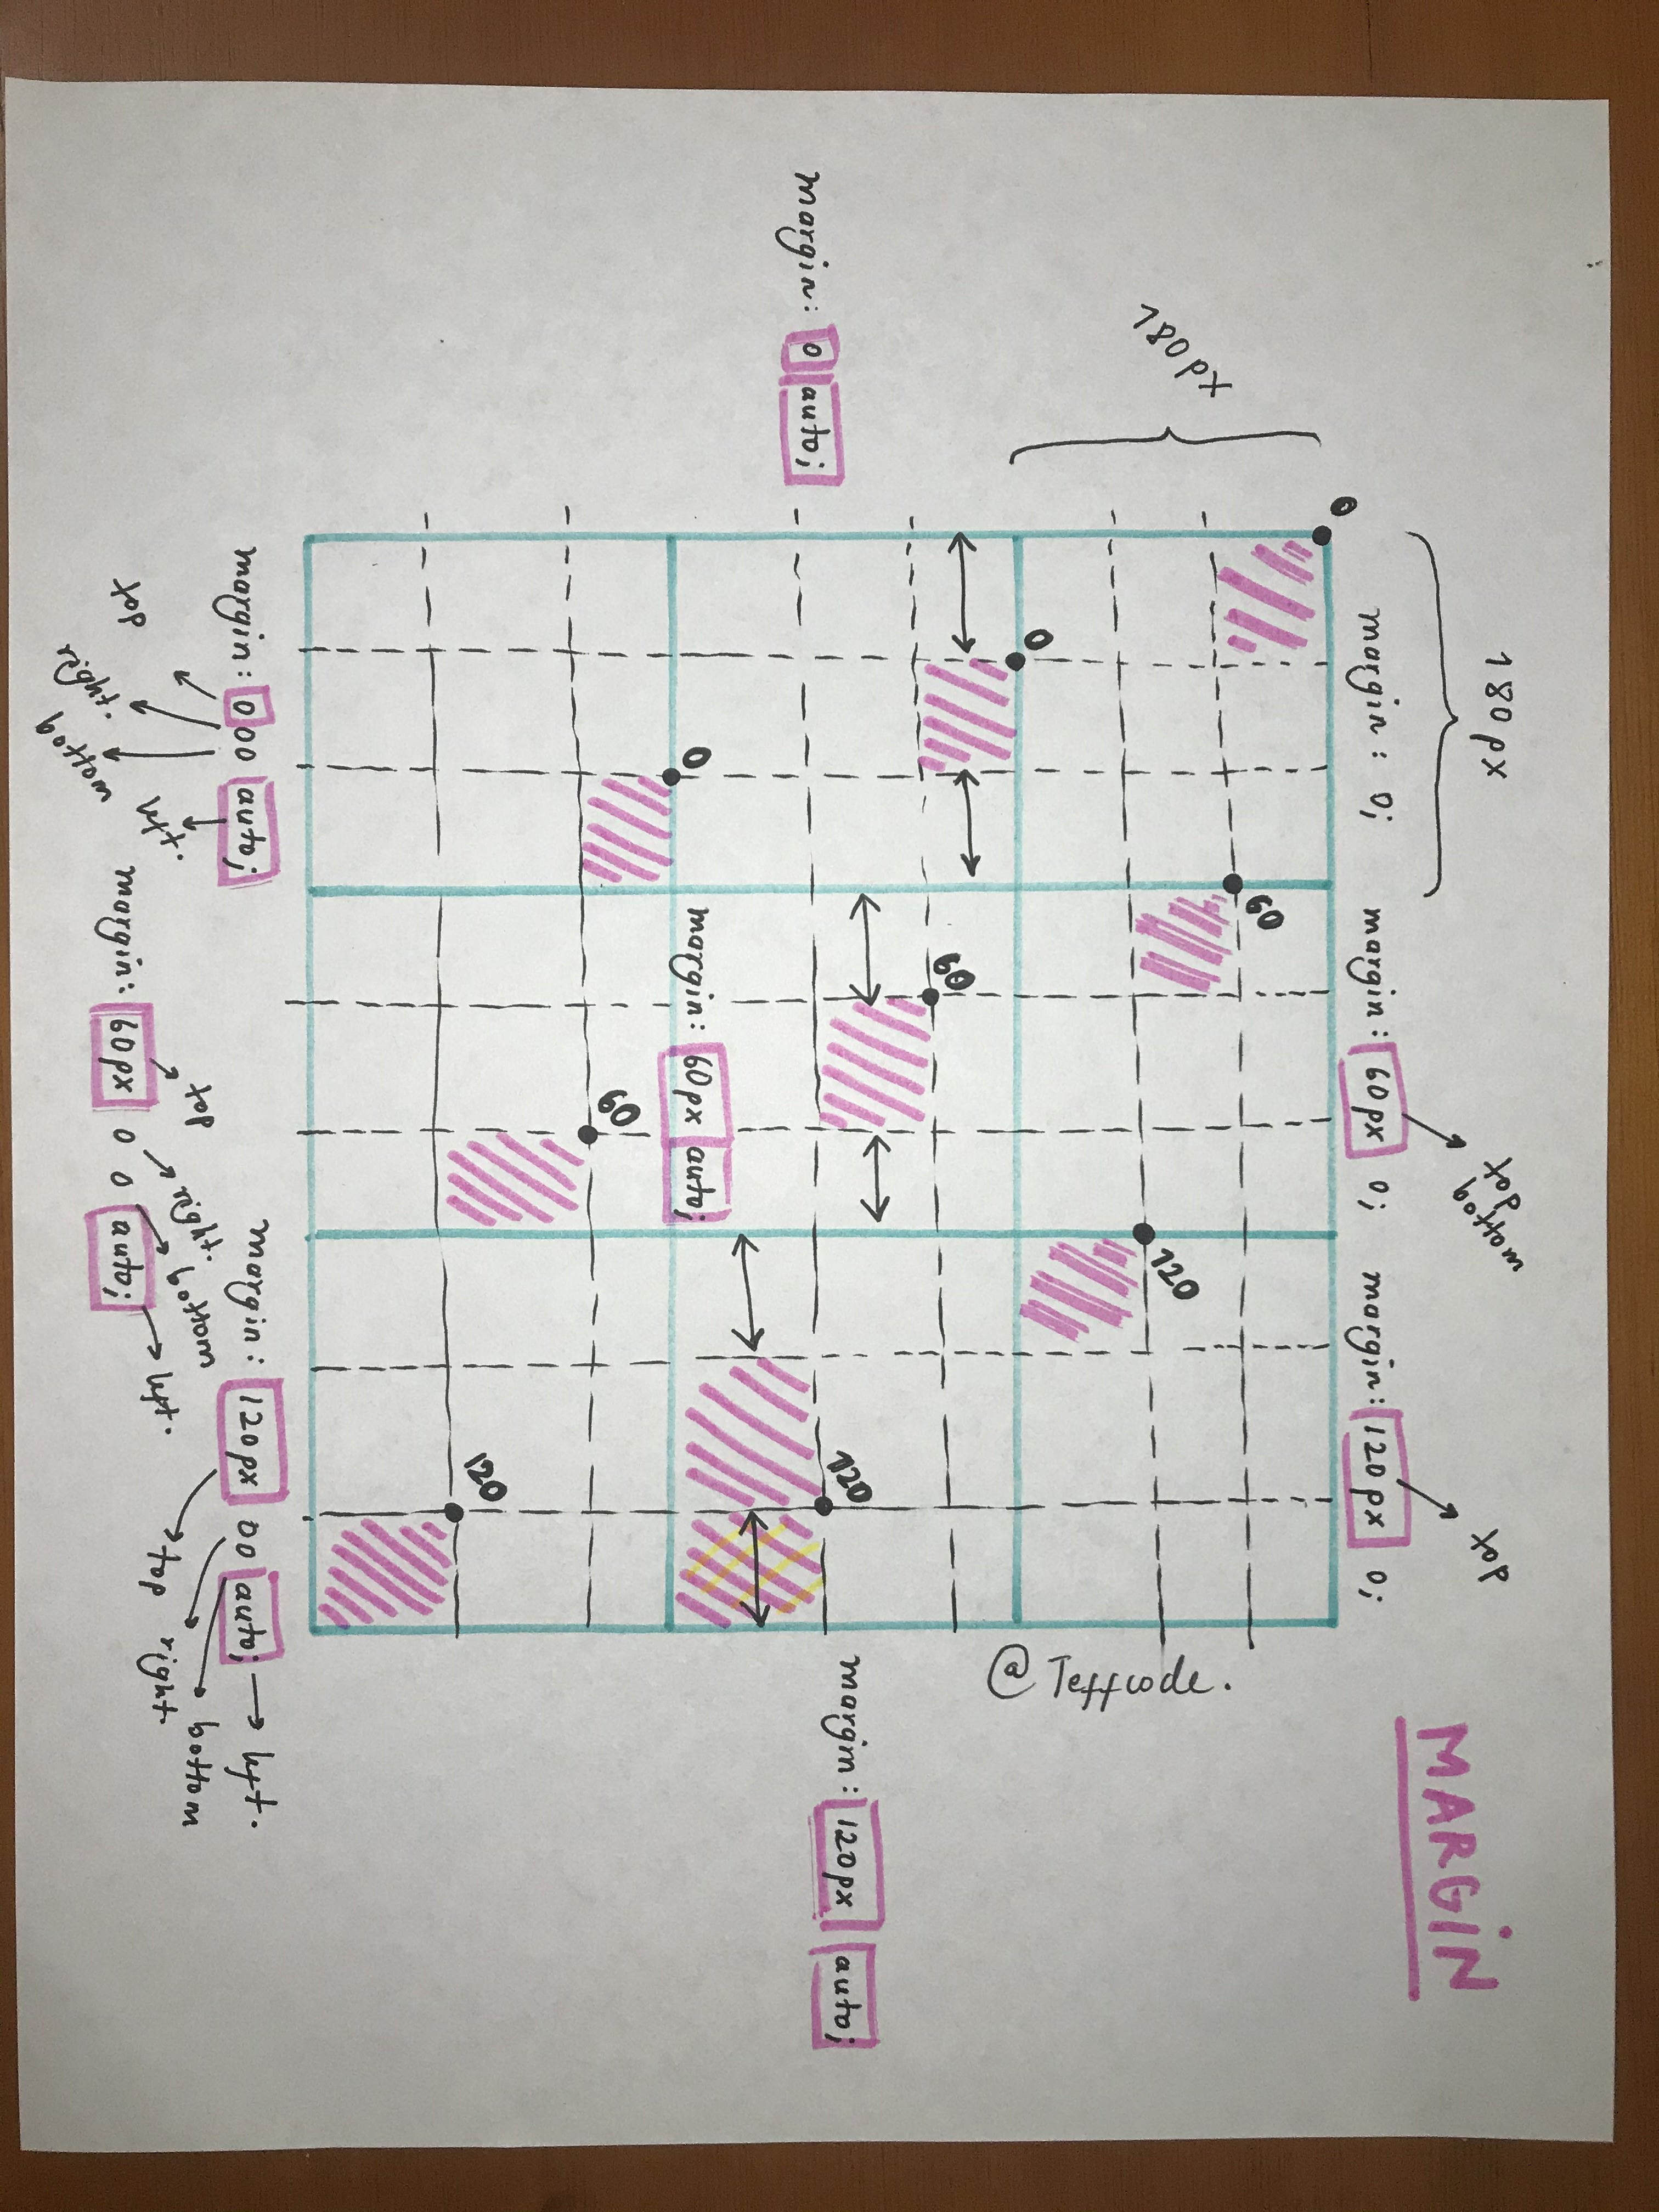 MARGIN
180px
top
bottom
top
margin: 0;
margin: 60px 0;
margin: 120px 0;
0
180px
60
120
@Teffcode.
0
60
margin: 0 auto;
120
margin: 120px auto;
0
margin: 60px auto;
60
120
margin: 0 0 0 auto;
top
right.
bottom
left.
margin: 60px 0 0 auto;
top
right.
bottom
left.
margin: 120px 0 0 auto;
top
right.
bottom
left.